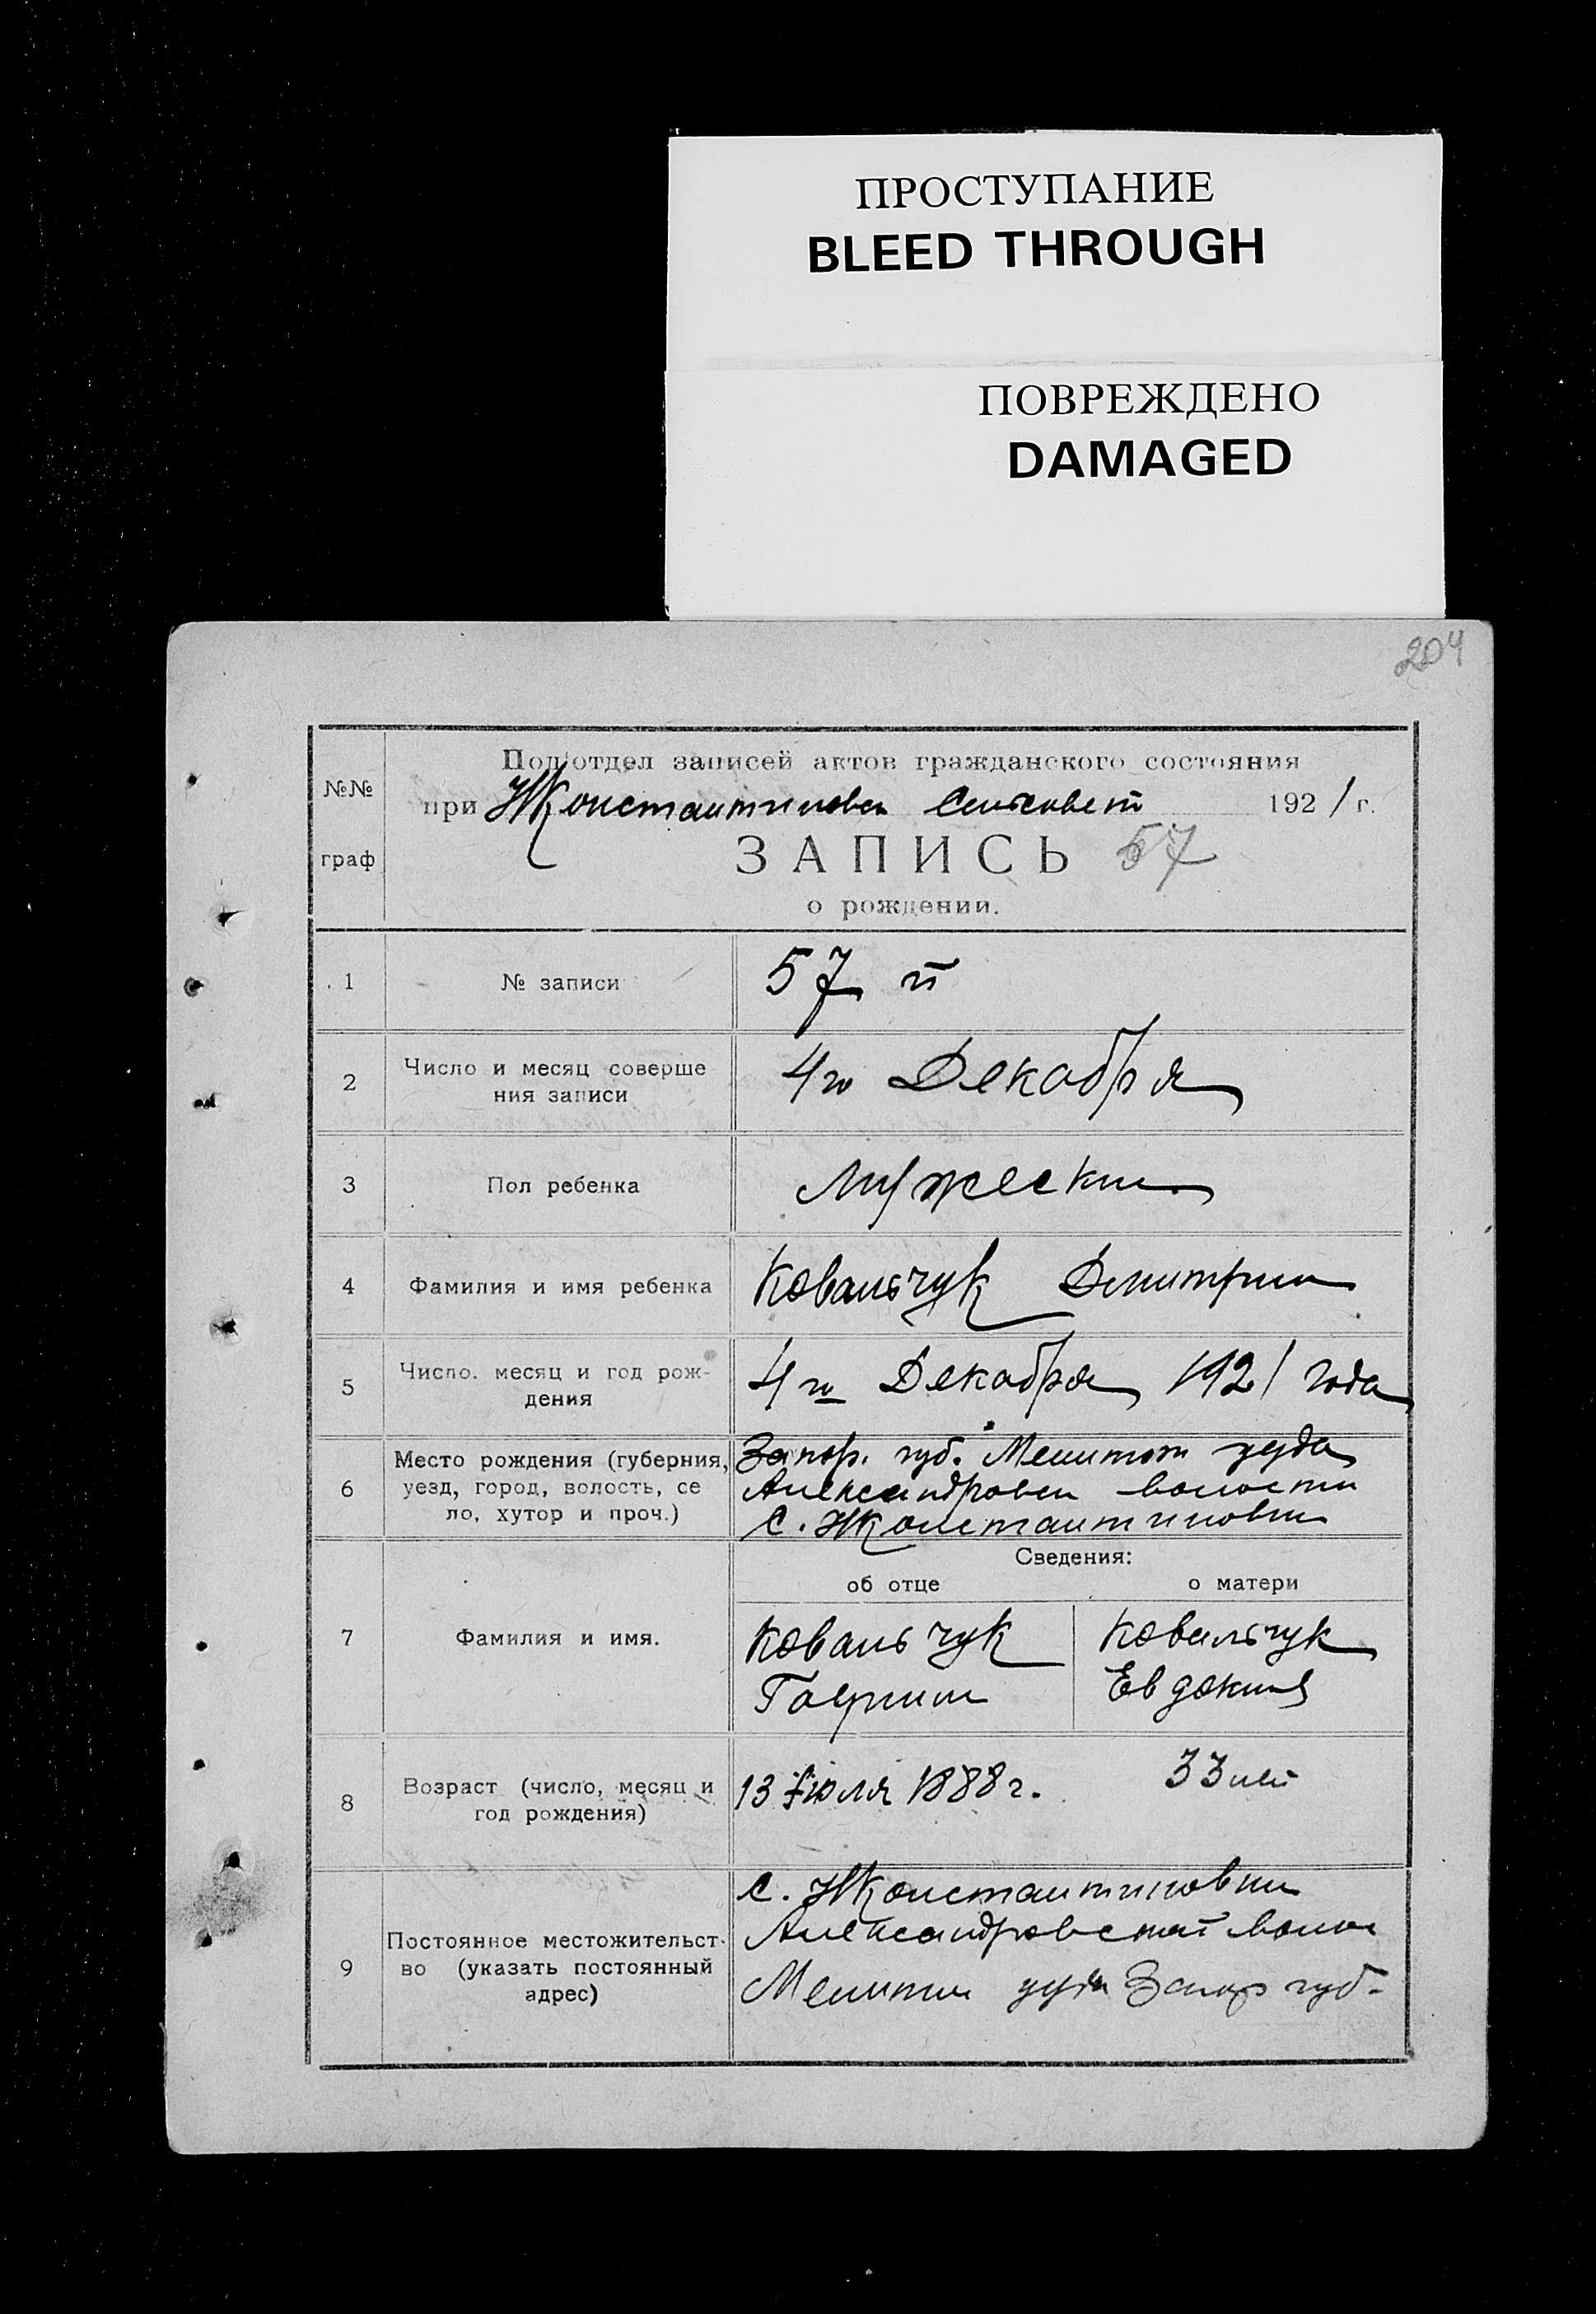 ПРОСТУПАНИЕ
BLEED THROUGH
ПОВРЕЖДЕНО
DAMAGED
204
№№
граф
Подотдел записей актов гражданского состояния
при НКонстантиновск Сельсовет 1921 г.
ЗАПИСЬ 57
о рождении.
1 № записи 57 й
2 Число и месяц соверше
ния записи
4го Декабря
3 Пол ребенка Мужески
4 Фамилия и имя ребенка Ковальчук Дмитрии
5 Число. месяц и год рож-
дения
4го Декабря 1921 года
6 Место рождения (губерния,
уезд, город, волость, се
ло, хутор и проч.)
Запор. губ. Мелитоп уезда
Александровск волости
С. НКонстантиновки
Сведения:
об отце о матери
7 Фамилия и имя.
Ковальчук Ковальчук
Гавриил Евдокия
8 Возраст (число, месяц и
год рождения)
13 Июля 1888 г. 33 лет
9 Постоянное местожительст-
во (указать постоянный
адрес)
С. НКонстантиновки
Александровской волос
Мелитоп уезда Запор губ.